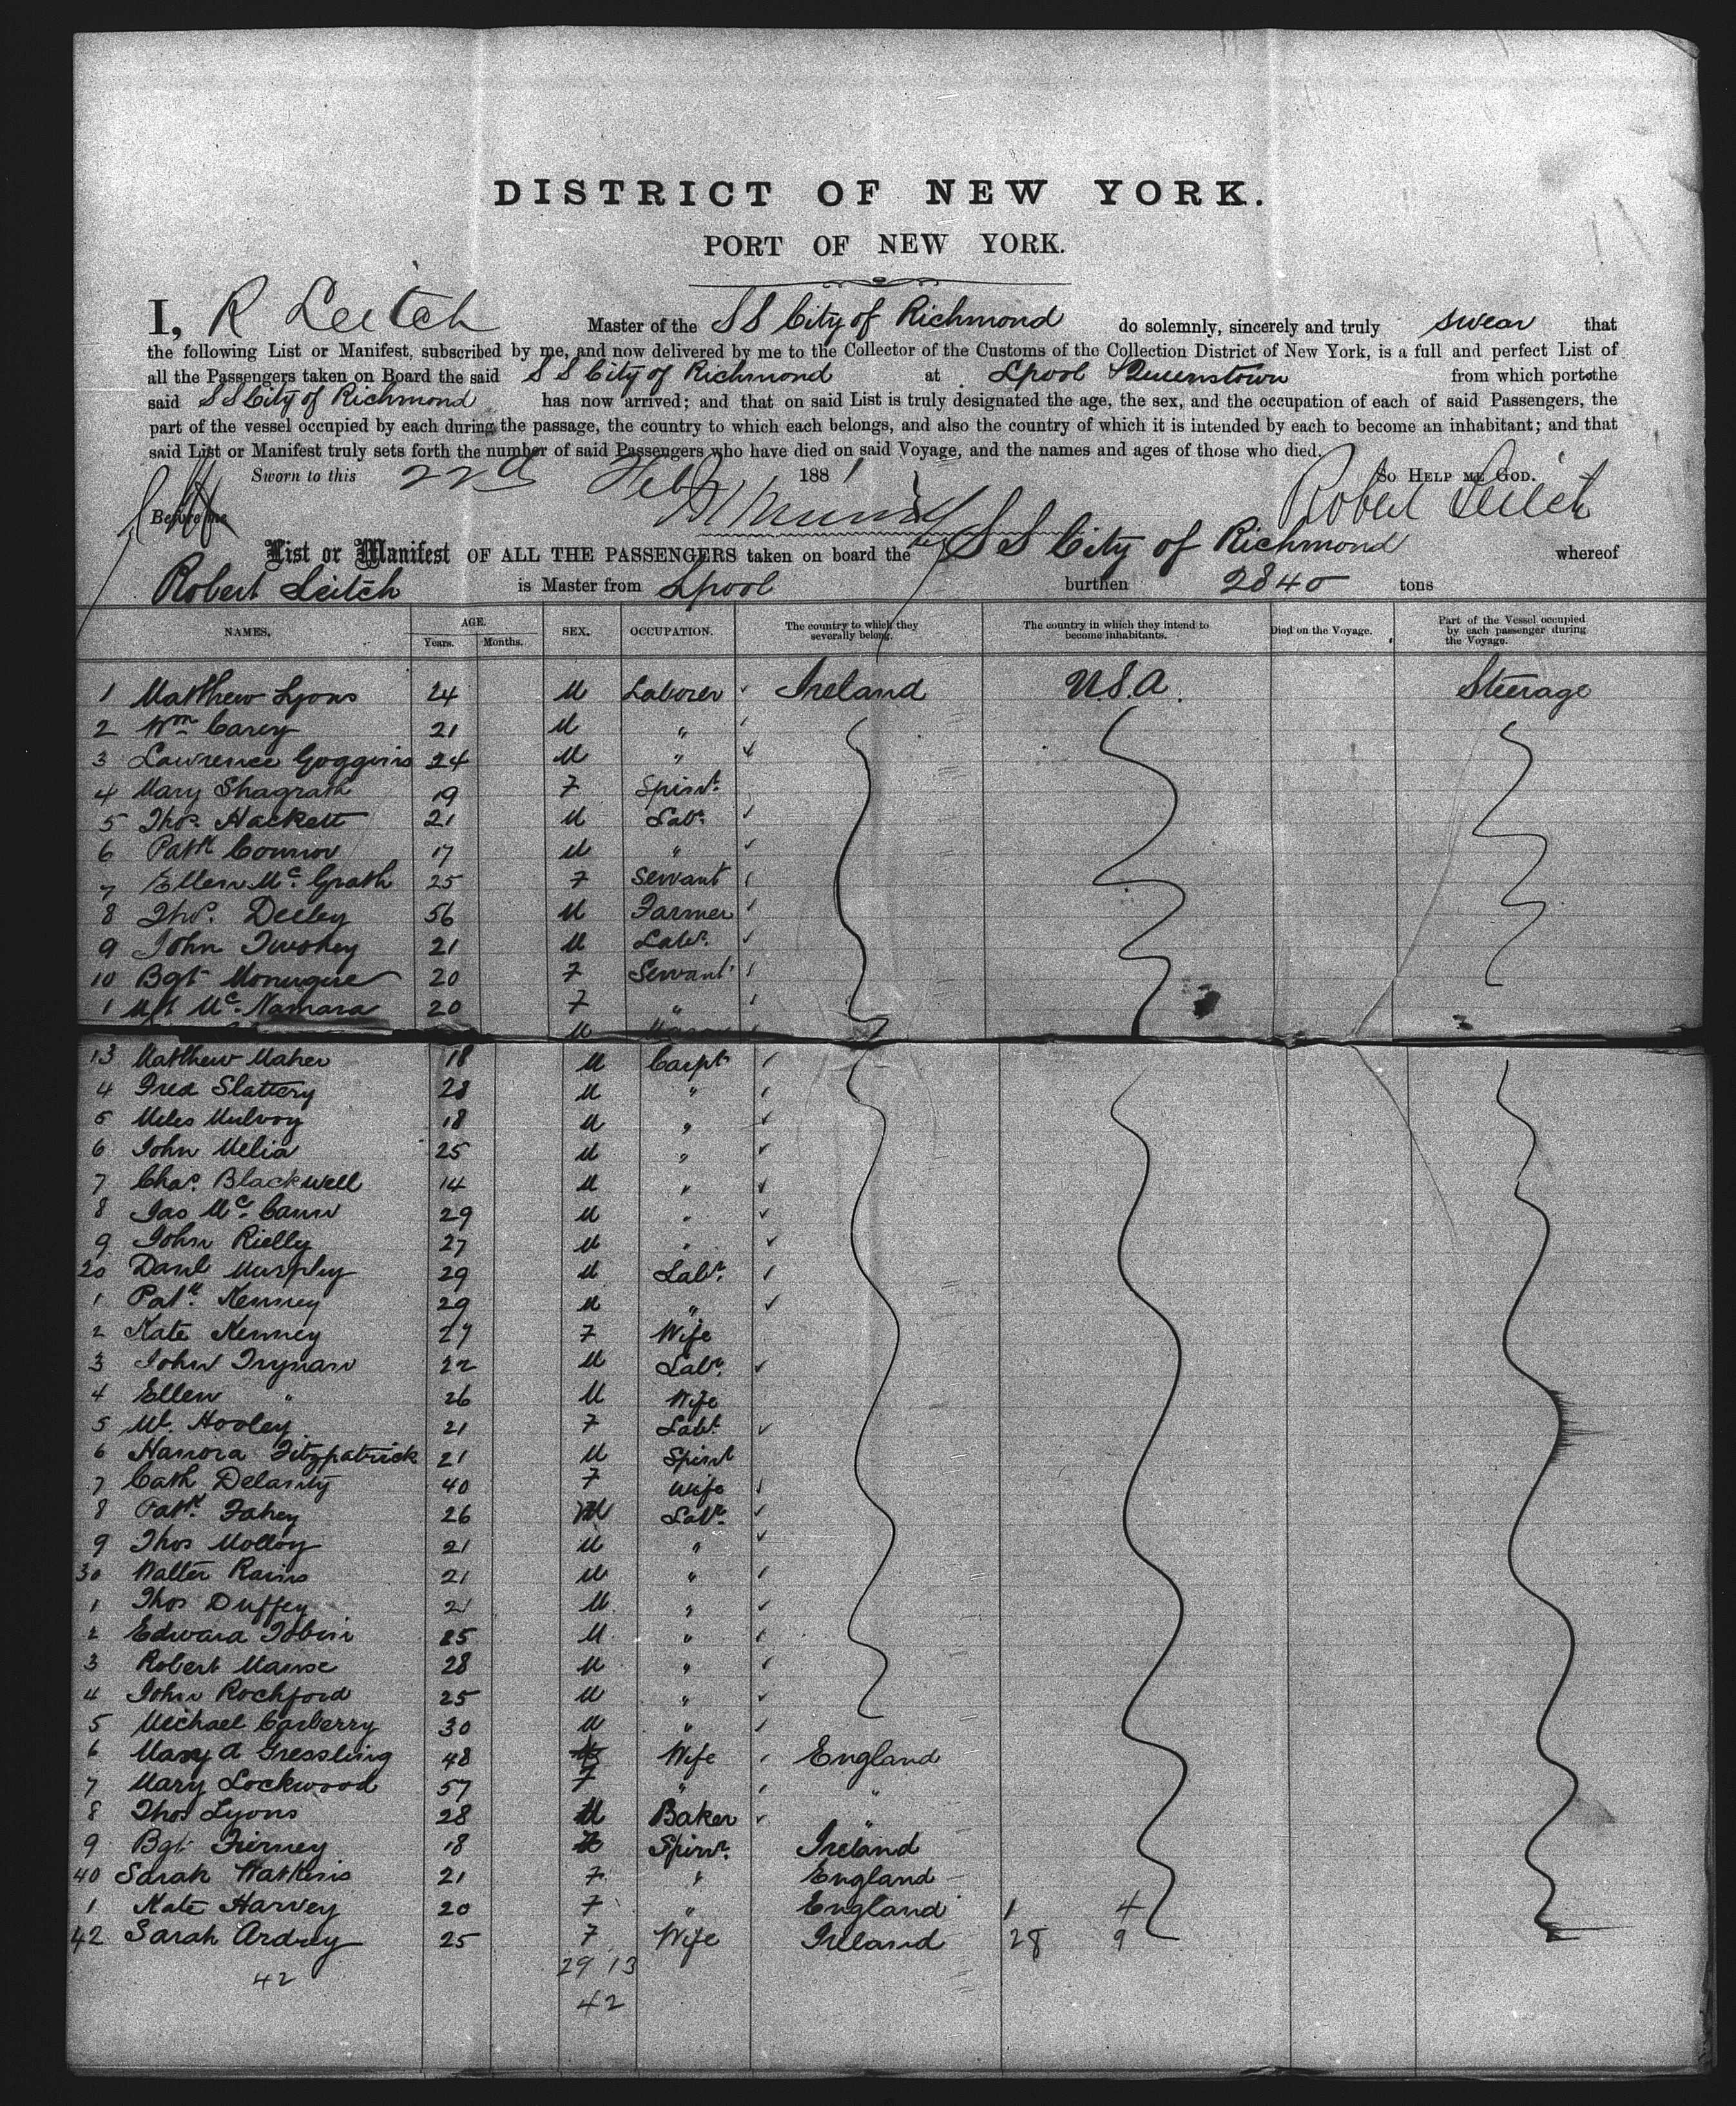 DISTRICT OF NEW YORK.
PORT OF NEW YORK.
I, R Leitch Master of the S S City of Richmond do solemnly, sincerely and truly swear that
the following List or Manifest, subscribed by me, and now delivered by me to the Collector of the Customs of the Collection District of New York, is a full and perfect List of
all the Passengers taken on Board the said S S City of Richmond at Lpool & Queenstown from which ports the
said S S City of Richmond has now arrived; and that on said List is truly designated the age, the sex, and the occupation of each of said Passengers, the
part of the vessel occupied by each during the passage, the country to which each belongs, and also the country of which it is intended by each to become an inhabitant; and that
said List or Manifest truly sets forth the number of said Passengers who have died on said Voyage, and the names and ages of those who died.
Sworn to this 22nd Feby 1881 So HELP ME GOD.
Before me Robert Leitch
List or Manifest OF ALL THE PASSENGERS taken on board the S S City of Richmond whereof
Robert Leitch is Master from Lpool burthen 2840 tons
NAMES. AGE. Years. Months. SEX. OCCUPATION. The country to which they severally belong. The country in which they intend to become inhabitants. Died on the Voyage. Part of the Vessel occupied by each passenger during the Voyage.
1 Matthew Lyons 24 M Laborer Ireland U.S.A. Steerage
2 Wm Carey 21 M "
3 Lawrence Goggins 24 M "
4 Mary Shagrath 19 F Spinr.
5 Thos. Hackett 21 M Labr.
6 Patk Connor 17 M "
7 Ellen Mc. Grath 25 F Servant
8 Thos. Deeley 56 M Farmer
9 John Twohey 21 M Labr.
10 Bgt 20 F Servant
1 Mc. Namara 20 F "
M
13 Matthew Maher 18 M Carpt
4 Fred Slattery 28 M "
5 Miles Mulvoy 18 M "
6 John Melia 25 M "
7 Chas. Blackwell 14 M "
8 Jas Mc. Cann 29 M "
9 John Rielly 27 M "
20 Danl Murphy 29 M Labr.
1 Patk. Kenney 29 M "
2 Kate Kenney 27 F Wife
3 John Trynan 22 M Labr.
4 Ellen " 26 M Wife
5 M. Hooley 21 F Labr.
6 Hanora Fitzpatrick 21 M Spinr
7 Cath Delanty 40 F Wife
8 Patk. Fahey 26 M Labr.
9 Thos Molloy 21 M "
30 Walter Rains 21 M "
1 Thos Duffey 21 M "
2 Edward Tobin 25 M "
3 Robert Manse 28 M "
4 John Rochford 25 M "
5 Michael Carberry 30 M "
6 Mary A Gressling 48 Wife England
7 Mary Lockwood 57 F " "
8 Thos Lyons 28 M Baker "
9 Bgt Tierney 18 F Spinr. Ireland
40 Sarah Watkins 21 F " England
1 Kate Harvey 20 F " England 1 4
42 Sarah Ardrey 25 F Wife Ireland 28 9
42 29 13
42